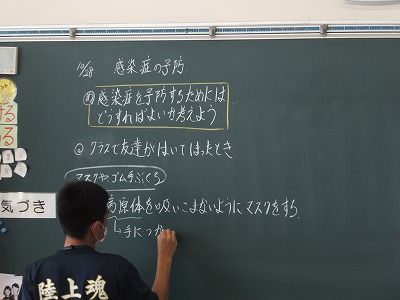 10/28 感染症の予防
め 感染症を予防するためには
どうすればよいか考えよう
クラスで友達がはいてしまったとき
マスクやゴム手ぶくろ
病原体を吸いこまないようにマスクをする
手につか
気づき
陸上魂